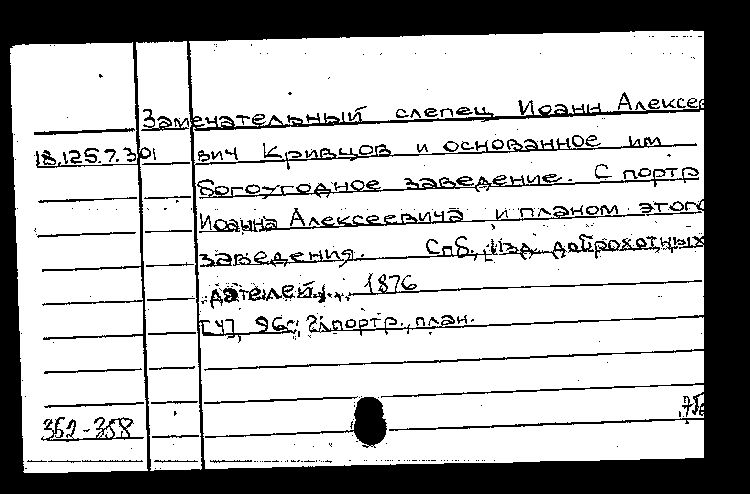 Замечательный слепец Иоанн Алексее
18.125.7.301 вич Кривцов и основанное им
богоугодное заведение. С портр
Иоанна Алексеевича и планом этого
заведения. Спб., Изд. доброхотных
дателей, 1876
[4], 96с., 2л. портр., план.
352-358